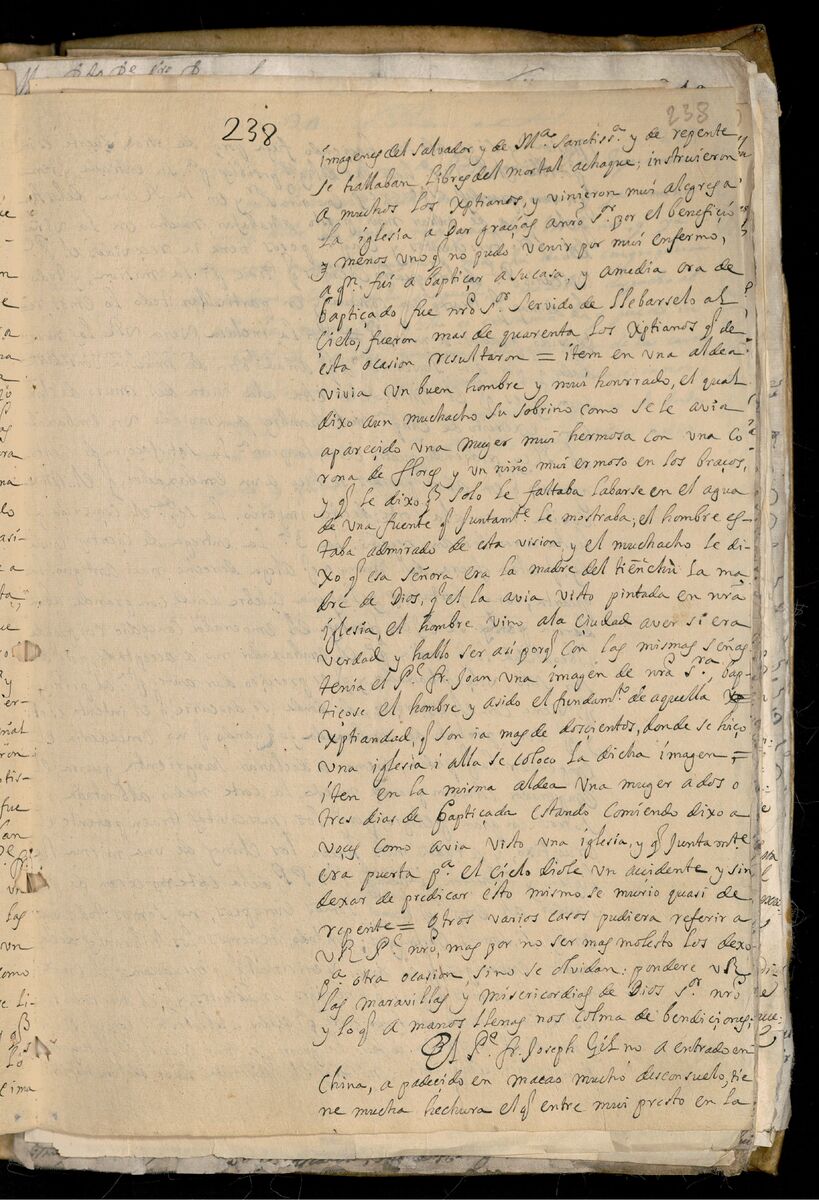 238
238
imagenes del salvador y de M.ª Sanctiss.ª y de repente
se hallaban Libres del mortal achaque; instruieron
a muchos los Xptianos, y vinieron mui alegres a
La iglesia a Dar gracias a nrõ S.or por el beneficio
y menos uno q̃ no pudo venir por mui enfermo,
a q.n fui a bapticar a su casa, y a media ora de
baptiçado fue nrõ S.or servido de Llebarselo al
Cielo, fueron mas de quarenta los Xptianos q̃ de
esta ocasion resultaron = item en vna aldea
vivia un buen hombre y mui honrrado, el qual
dixo a un muchacho su sobrino como se le avia
aparecido vna muger mui hermosa con una Co
rona de flores y un niño mui ermoso en los braços,
y q̃ le dixo q̃ solo le faltaba labarse en el agua
de vna fuente q̃ Juntam.te le mostraba; el hombre es-
taba admirado de esta vision, y el muchacho le di-
xo q̃ esa señora era la madre del tienchu la ma
dre de Dios, q̃ el la avia visto pintada en nrã
iglesia, el hombre vino a la ciudad a ver si era
verdad y hallò ser asi porq̃ con las mismas señas
tenia el P.e fr. Joan, vna imagen de nrã S.ra, bap-
ticose el hombre y a sido el fundam.to de aquella
Xptiandad, q̃ son ia mas de doscientos, donde se hiço
vna iglesia i alla se coloco la dicha imagen =
iten en la misma aldea vna muger a dos o
tres dias de baptiçada estando comiendo dixo a
voces como avia visto vna iglesia, y q̃ Juntam.te
era puerta p.ª el cielo diole un accidente y sin
dexar de predicar esto mismo se murio quasi de
repente = Otros varios casos pudiera referir a
V R. P.e nrõ, mas por no ser mas molesto los dexo
p.ª otra ocasion, si no se olvidan: pondere V R.
las maravillas y misericordias de Dios S.or nrõ
y lo q̃ a manos llenas nos colma de bendiciones;
El P.e fr. Joseph Gil no a entrado en
China, a padecido en macao mucho desconsuelo, tie
ne mucha hechura el q̃ entre mui presto en la